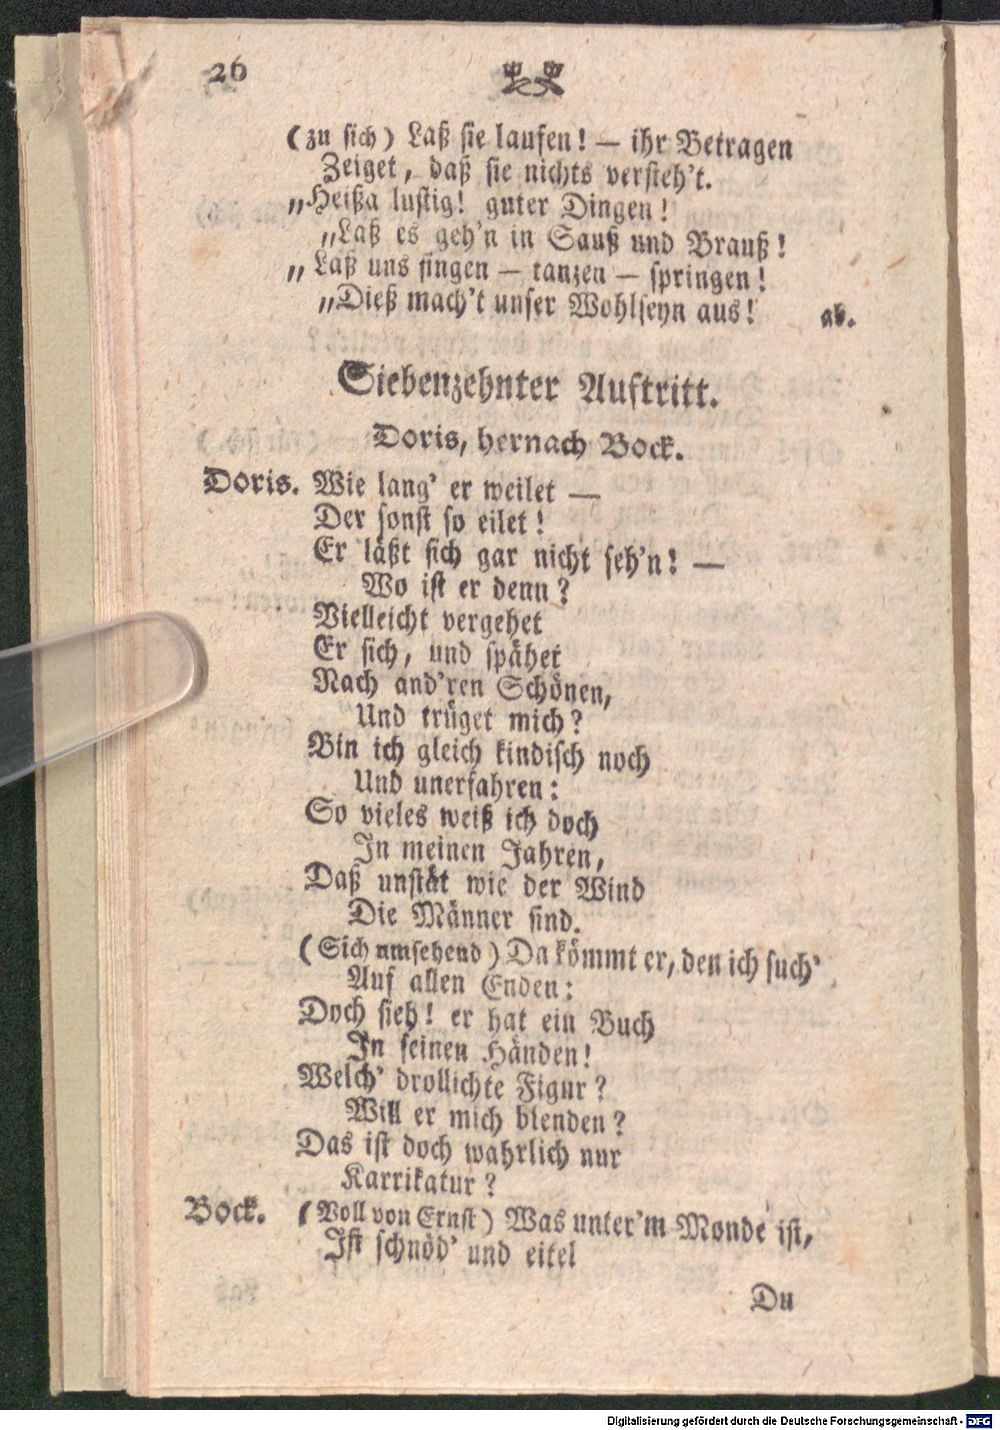 26
(zu sich) Laß sie laufen! — ihr Betragen
Zeiget, daß sie nichts versteh't.
„Heißa lustig! guter Dingen!
„Laß es geh'n in Sauß und Brauß!
„Laß uns singen — tanzen — springen!
„Dieß mach't unser Wohlseyn aus! ab.
Siebenzehnter Auftritt.
Doris, hernach Bock.
Doris. Wie lang' er weilet —
Der sonst so eilet!
Er läßt sich gar nicht seh'n! —
Wo ist er denn?
Vielleicht vergehet
Er sich, und spähet
Nach and'ren Schönen,
Und trüget mich?
Bin ich gleich kindisch noch
Und unerfahren:
So vieles weiß ich doch
In meinen Jahren,
Daß unstät wie der Wind
Die Männer sind.
(Sich umsehend) Da kömmt er, den ich such'
Auf allen Enden:
Doch sieh! er hat ein Buch
In seinen Händen!
Welch' drollichte Figur?
Will er mich blenden?
Das ist doch wahrlich nur
Karrikatur?
Bock. (Voll von Ernst) Was unter'm Monde ist,
Ist schnöd' und eitel
Du
Digitalisierung gefördert durch die Deutsche Forschungsgemeinschaft - DFG